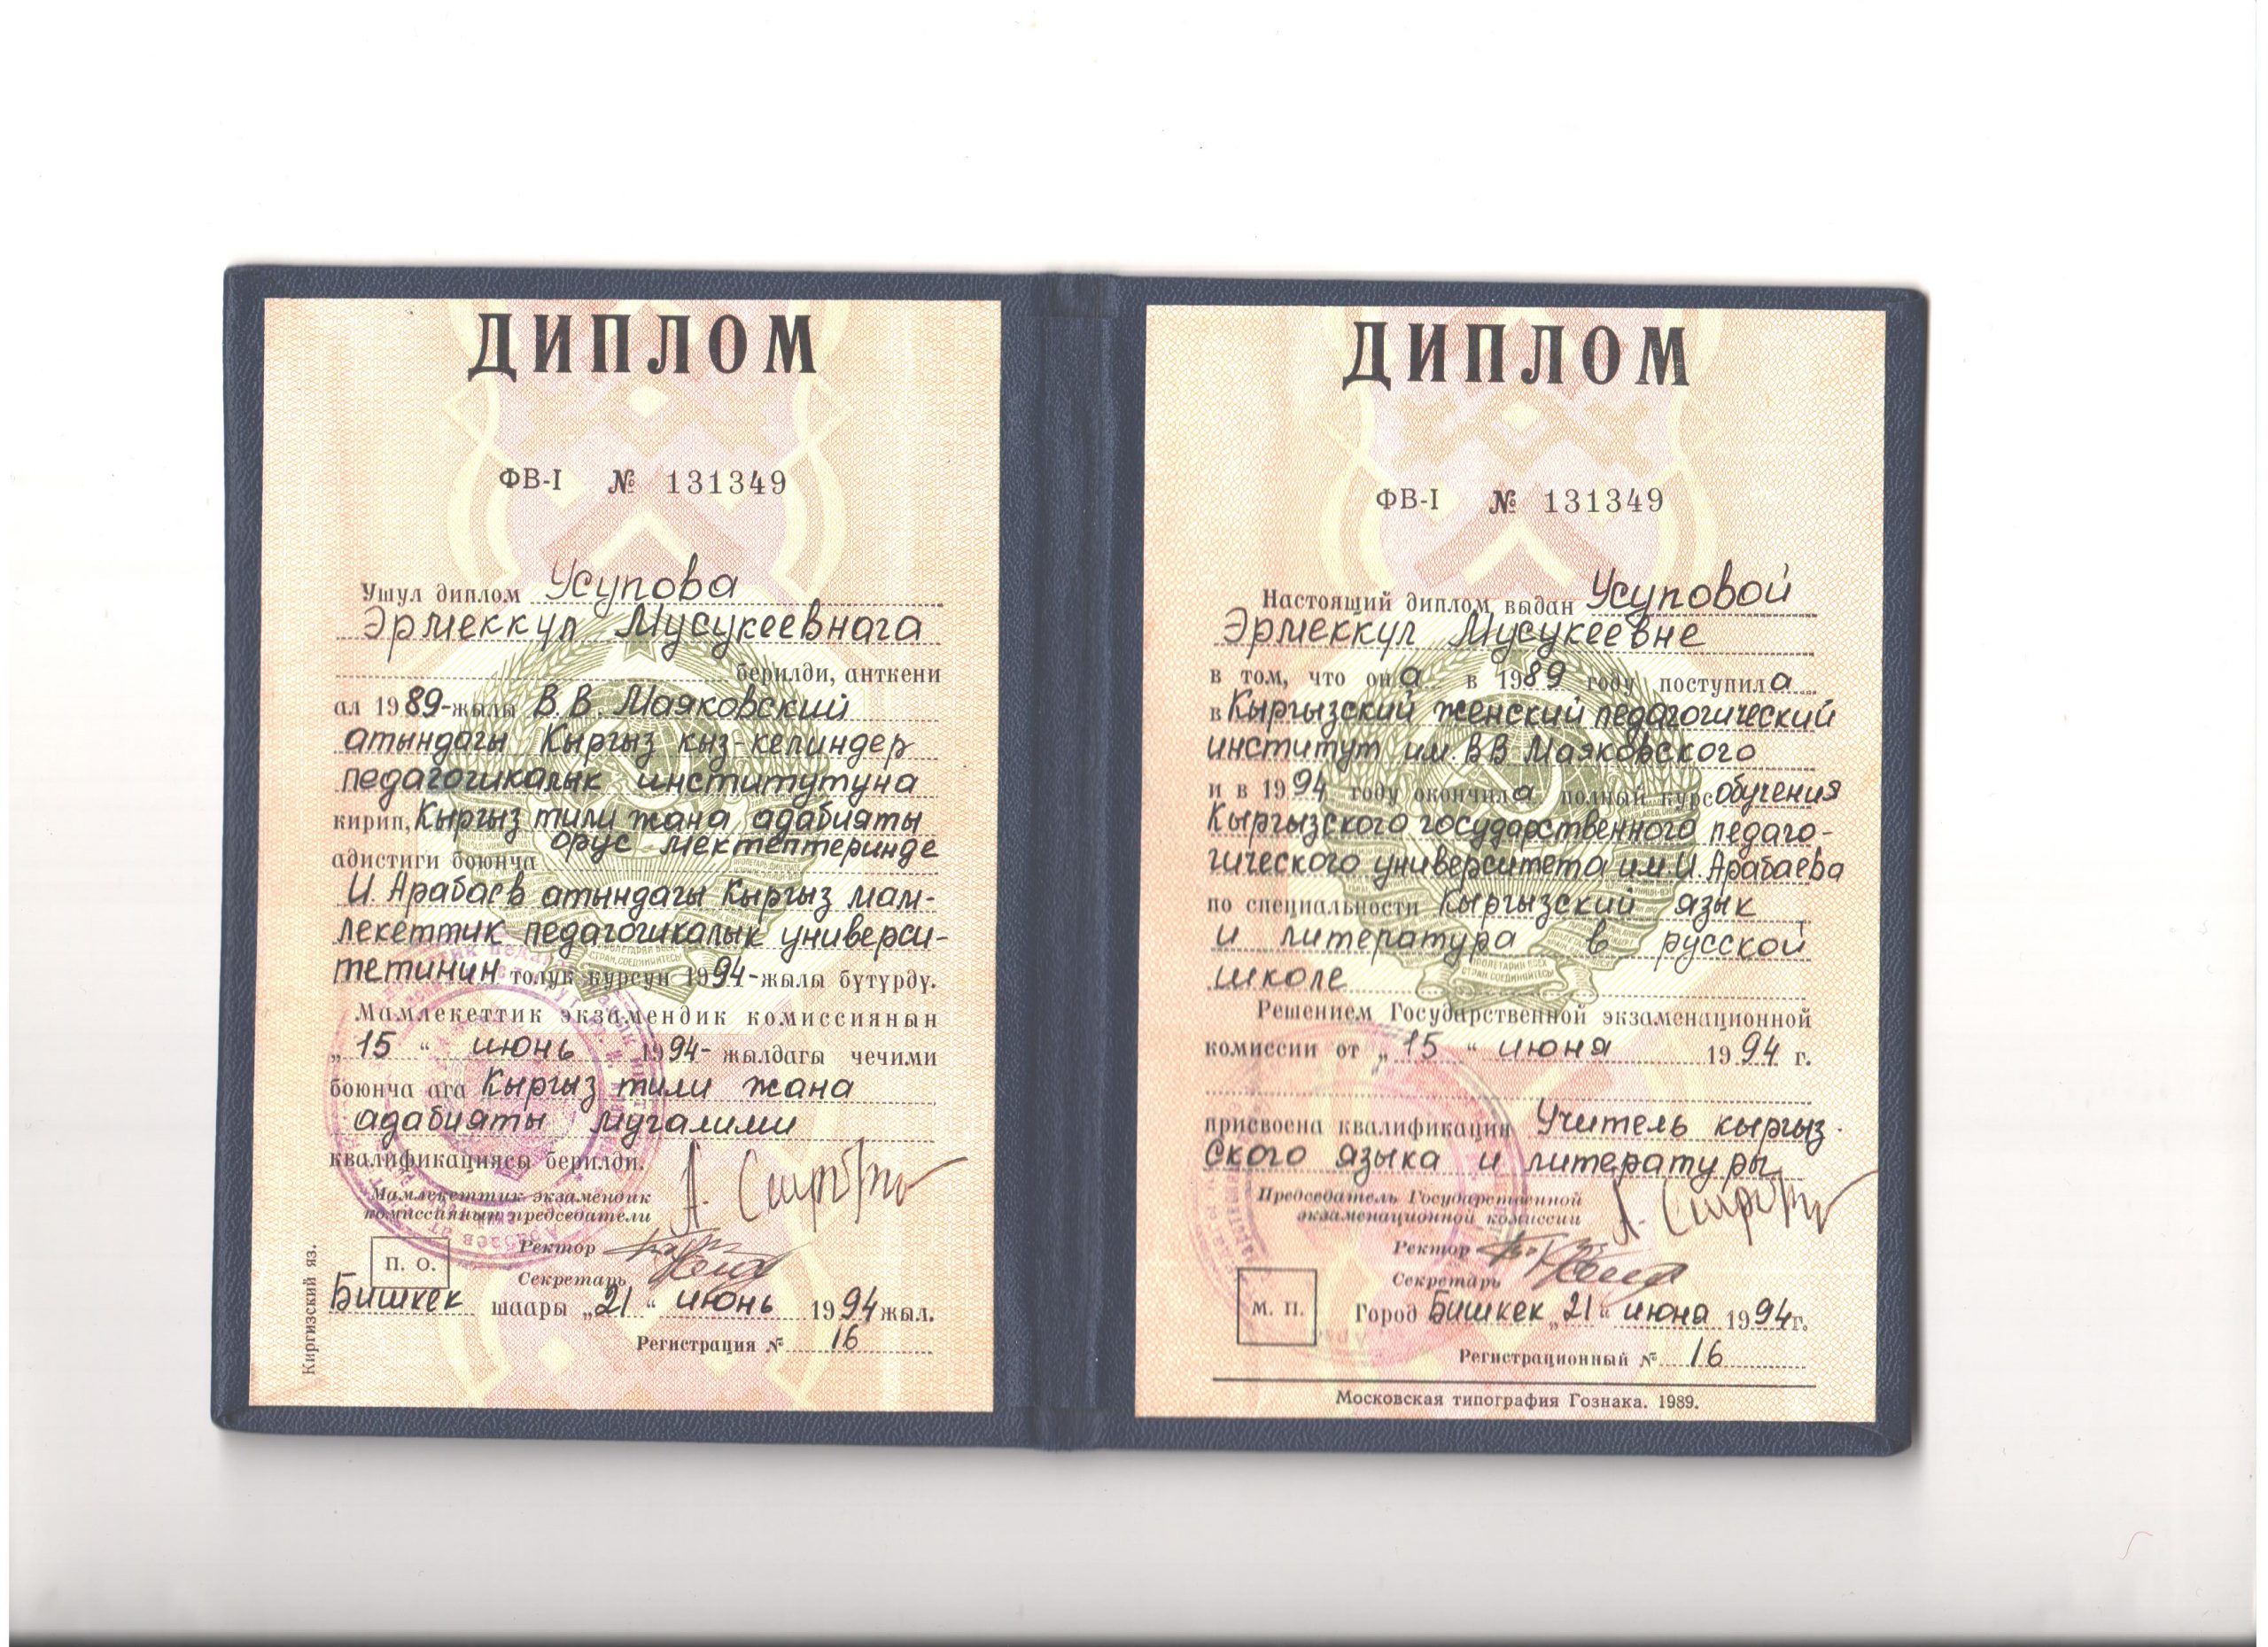 ДИПЛОМ
ФВ-I № 131349
Ушул диплом Усупова
Эрмеккул Мусукеевнага
берилди, анткени
ал 1989-жылы В.В. Маяковский
атындагы Кыргыз кыз-келиндер
педагогикалык институтуна
кирип, Кыргыз тили жана адабияты
адистиги боюнча орус мектептеринде
И. Арабаев атындагы Кыргыз мам-
лекеттик педагогикалык универси-
тетинин толук курсун 1994-жылы бүтүрдү.
Мамлекеттик экзамендик комиссиянын
„15“ июнь 1994-жылдагы чечими
боюнча ага Кыргыз тили жана
адабияты мугалими
квалификациясы берилди.
Мамлекеттик экзамендик
комиссиянын председатели
Ректор
Секретарь
П. О.
Бишкек шаары „21“ июнь 1994 жыл.
Регистрация № 16
Киргизский яз.
ДИПЛОМ
ФВ-I № 131349
Настоящий диплом выдан Усуповой
Эрмеккул Мусукеевне
в том, что она в 1989 году поступила
в Кыргызский женский педагогический
институт им. В В Маяковского
и в 1994 году окончила полный курс обучения
Кыргызского государственного педаго-
гического университета им. И. Арабаева
по специальности Кыргызский язык
и литература в русской
школе
Решением Государственной экзаменационной
комиссии от „15“ июня 1994 г.
присвоена квалификация Учитель кыргыз-
ского языка и литературы
Председатель Государственной
экзаменационной комиссии
Ректор
Секретарь
М. П.
Город Бишкек „21“ июня 1994г.
Регистрационный № 16
Московская типография Гознака. 1989.